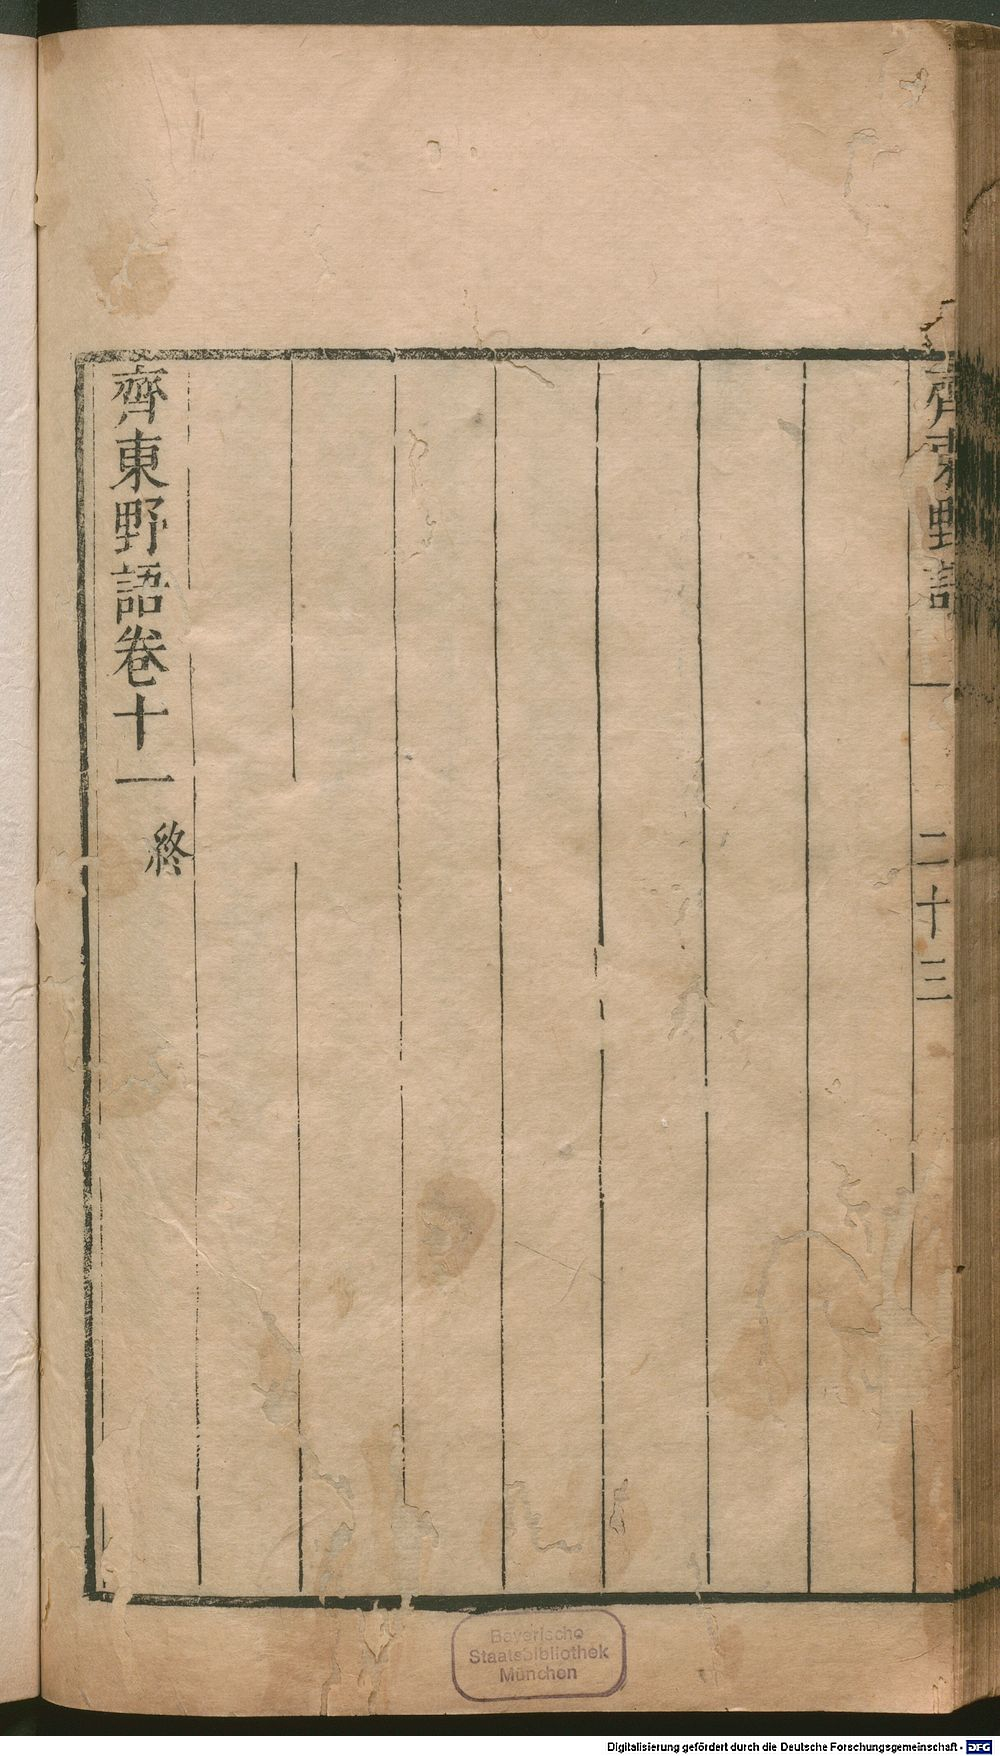 齊東野語
二十三
齊東野語卷十一 終
Bayerische
Staatsbibliothek
München
Digitalisierung gefördert durch die Deutsche Forschungsgemeinschaft - DFG